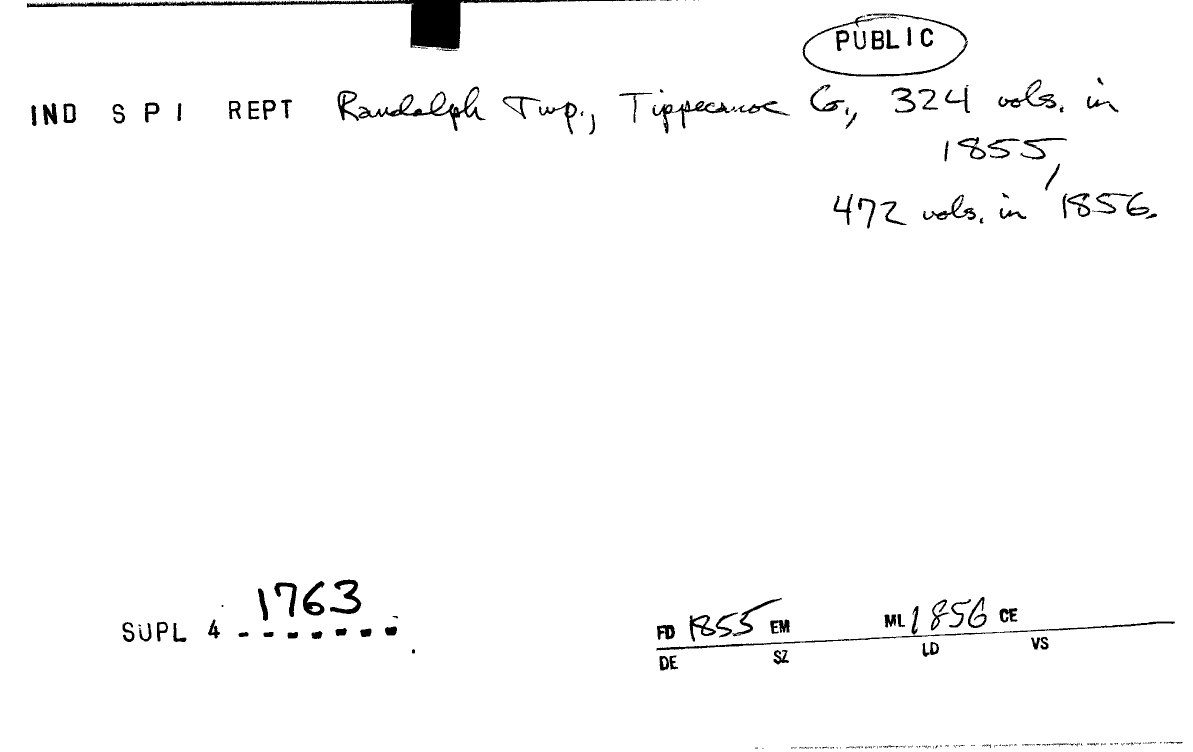 PUBLIC
IND S P I REPT Randolph Twp., Tippecanoe Co., 324 vols. in
1855,
472 vols. in 1856.
1763
SUPL 4 - - - - - - -
FD 1855 EM ML 1856 CE
DE SZ LD VS